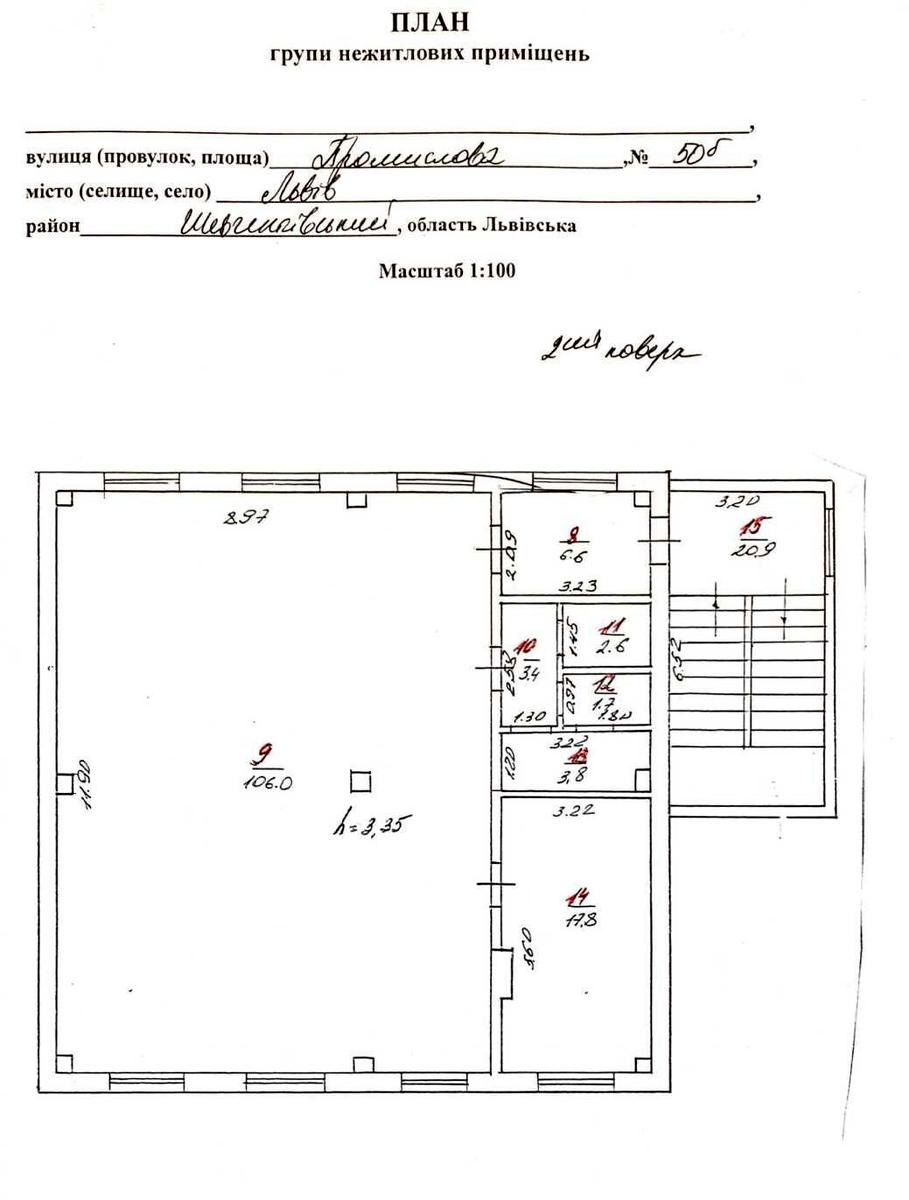 ПЛАН
групи нежитлових приміщень
,
вулиця (провулок, площа) Промислова ,№ 50б ,
місто (селище, село) Львів ,
район Шевченківський , область Львівська
Масштаб 1:100
2ий поверх
8.97
3,20
15
20,9
2.09
8
6.6
3.23
1.45
11
2.6
10
3.4
2.58
6.52
0.97
12
1.7
1.80
1.30
3.22
13
3,8
1.20
9
106.0
11.90
h=3,35
3.22
14
17,8
5.60